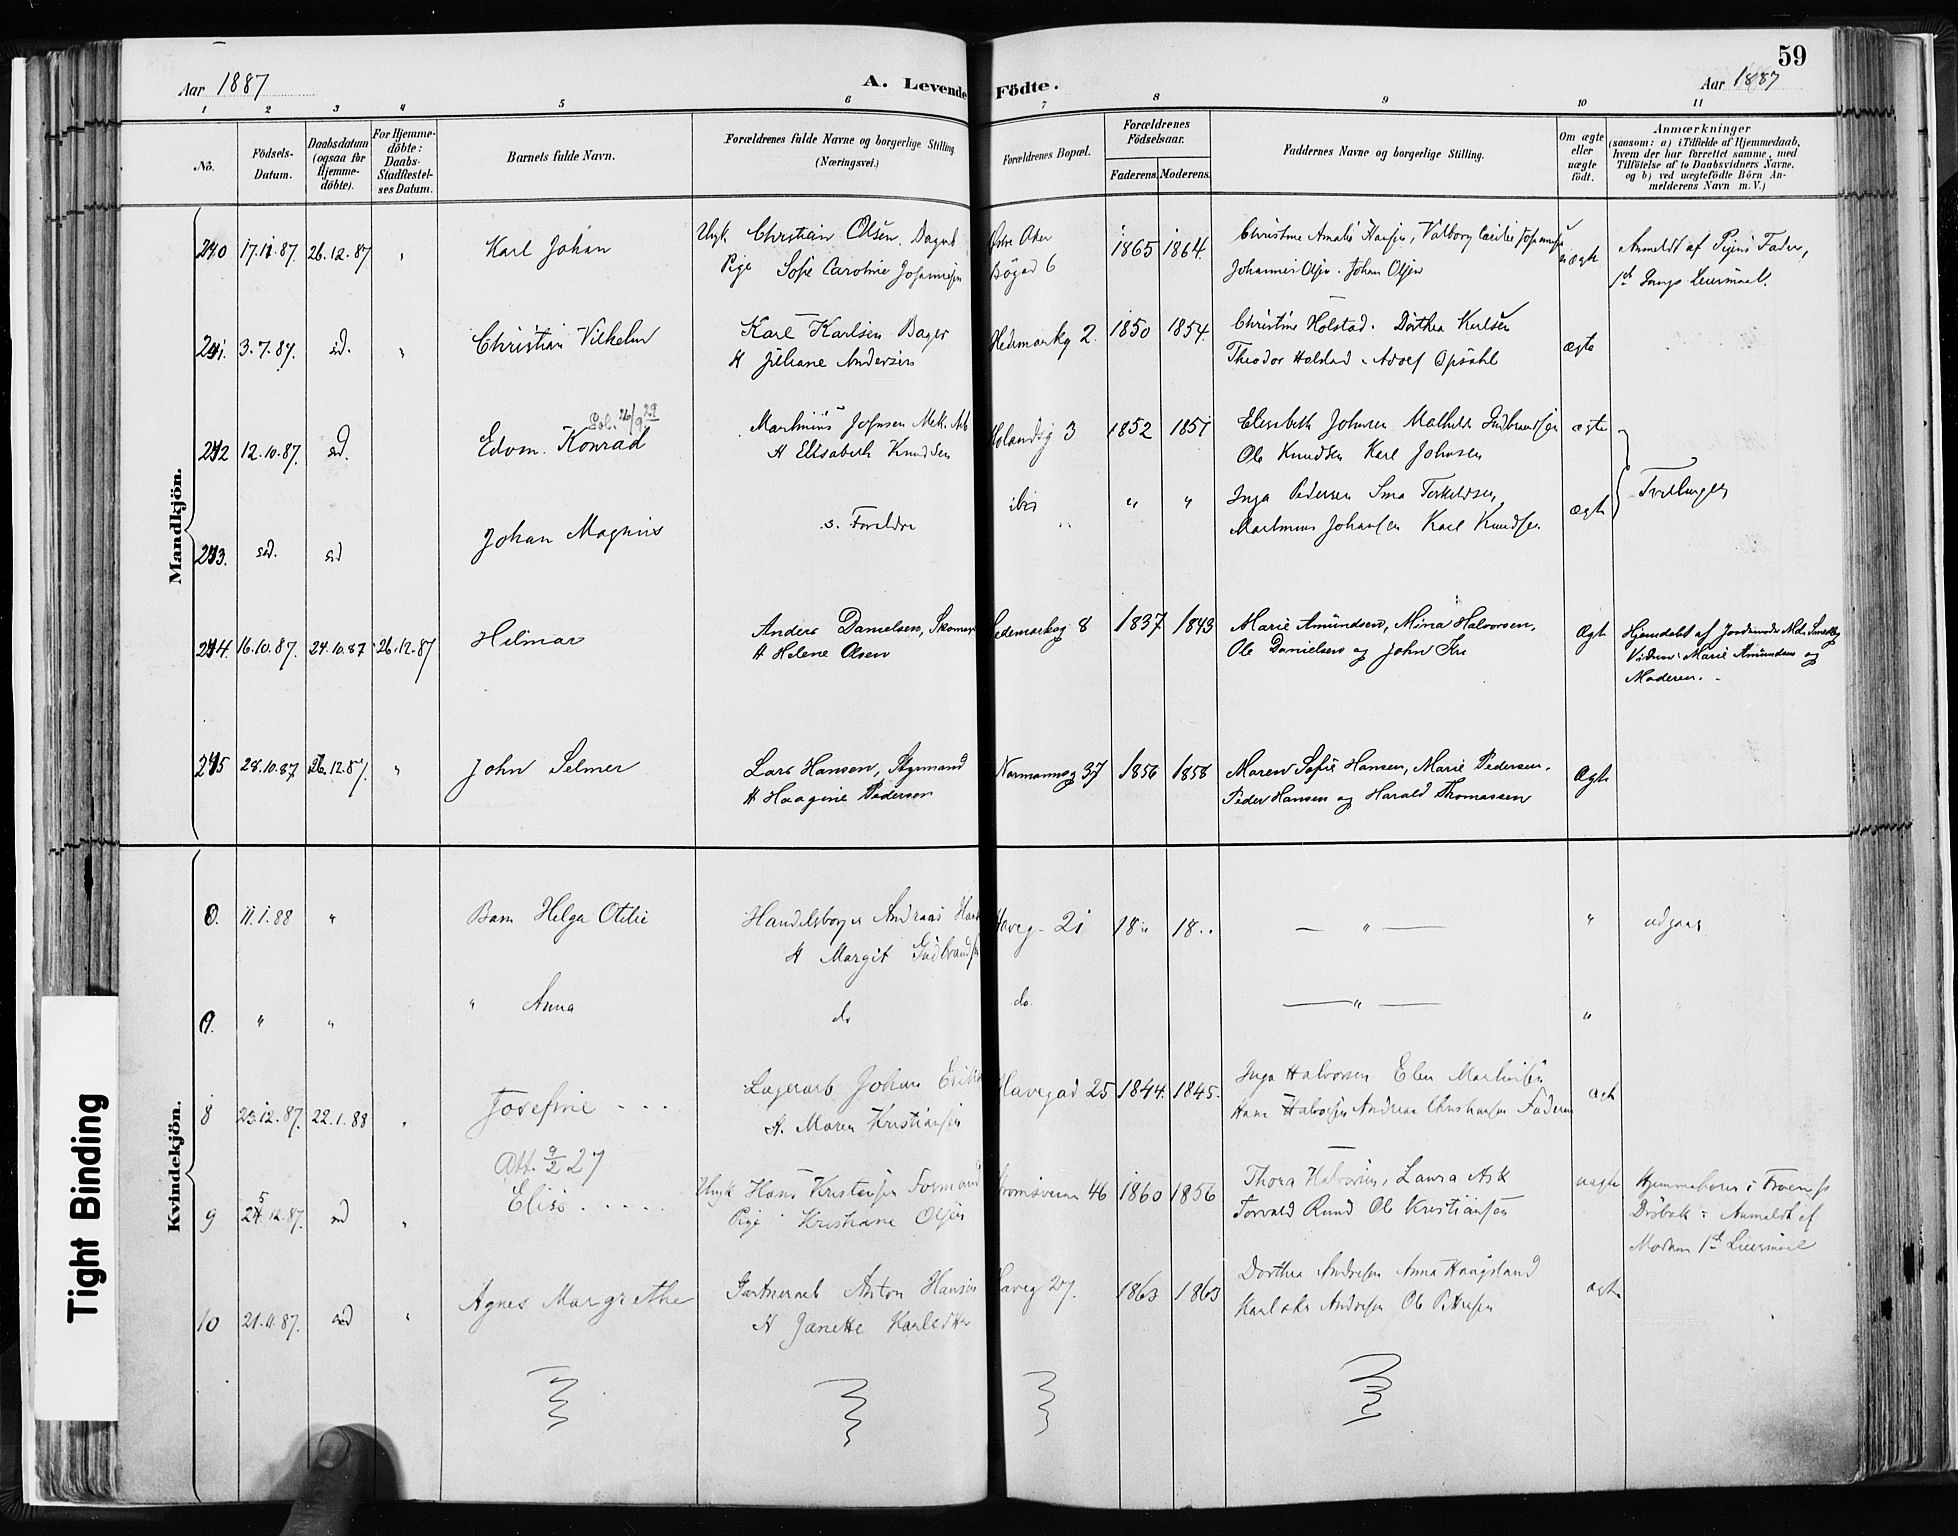 59
Aar 1887
A. Levende Födte.
Aar 1887
1 2 3 4 5 6 7 8 9 10 11
No.
Födsels-Datum.
Daabsdatum (ogsaa for Hjemme-döbte).
For Hjemme-döbte: Daabs-Stadfæstel-ses Datum.
Barnets fulde Navn.
Forældrenes fulde Navne og borgerlige Stilling (Næringsvei.)
Forældrenes Bopæl.
Forældrenes Födselsaar.
Faderens. Moderens.
Faddernes Navne og borgerlige Stilling.
Om ægte eller uægte födt.
Anmærkninger
(saasom: a) i Tilfælde af Hjemmedaab,
hvem der har forrettet samme, med
Tilföielse af to Daabsvidners Navne,
og b) ved uægtefödte Börn An-
melderens Navn m. V.)
Mandkjön.
240 17.11.87. 26.12.87 " Karl Johan Ungk Christian Olsen. 1865 1864. Christine Amalie Hansen, Valborg uægte Anmeldt af Pigens Fader,
Pige Sofie Caroline Johannesen Bögad 6 Johannes Olsen. Johan Olsen
241. 3.7.87. sd. " Christian Vilhelm Karl Karlsen Bager Hedemarkg 2. 1850 1854. Christine Holstad. Dorthea Karlsen ægte
H Juliane Andersen Theodor Holstad. Adolf Opsahl
26/9 29
242 12.10.87. sd. Edvin Konrad Martinius Johnsen Mek. Arb Holandsg 3 1852 1857 Elisabeth Johnsen Mathilde Gudbrandsen ægte
H Elisabeth Knudsen Ole Knudsen Karl Johnsen
Tvillinger
243. sd. sd Johan Magnus s. Foreldre ibid " " Inga Pedersen ægte
Martinius Johansen Karl Knudsen
244. 16.10.87. 24.10.87 26.12.87 Hilmar Anders Danielsen, Skomag Hedemarksg 8 1837 1843 Marie Amundsen, Mina Halvorsen, Ægte Hjemdøbt af Jordmoder
H Helene Olsen Ole Danielsen og John Marie Amundsen og
Moderen.
245 28.10.87 26.12.87. " John Selmer Lars Hansen, Styrmand Normannsg 37 1856 1858 Maren Sofie Hansen, Marie Pedersen. Ægte
H Haagine Pedersen Peder Hansen og Harald Thomassen
Kvindekjön.
0. 11.1.88 " Barn Helga Otilie Handelsborger Andreas Haveg 21 18" 18.. — " — " udgaar
H Margit Gudbrandsen
0. " " " Anna do do. — " — "
8 23.12.87. 22.1.88 " Josefine . . . Lagerarb Johan Havegad 25 1844. 1845. Inga Halvorsen Elen Martinsen ægte
H. Maren Kristiansen Hans Halvorsen Andreas Christiansen Faderen
Att. 9/2 27
9 25.12.87. sd " Elise . . . . . Ungk Hans Kristensen Formand Strømsveien 46 1860 1856 Thora Halvorsen, Laura Ask uægte Hjemmehører i
Pige Kristiane Olsen Torvald Rund Ole Kristiansen Drøbak Anmeldt af
Moderen 1ste Leiermaal
10 21.11.87. sd " Agnes Margrethe Gartnerarb Anton Hansen Haveg 27. 1863 1863 Dorthea Andresen Anna Haugstand ægte
H Janette Karl Andresen Ole Pettersen
Tight Binding